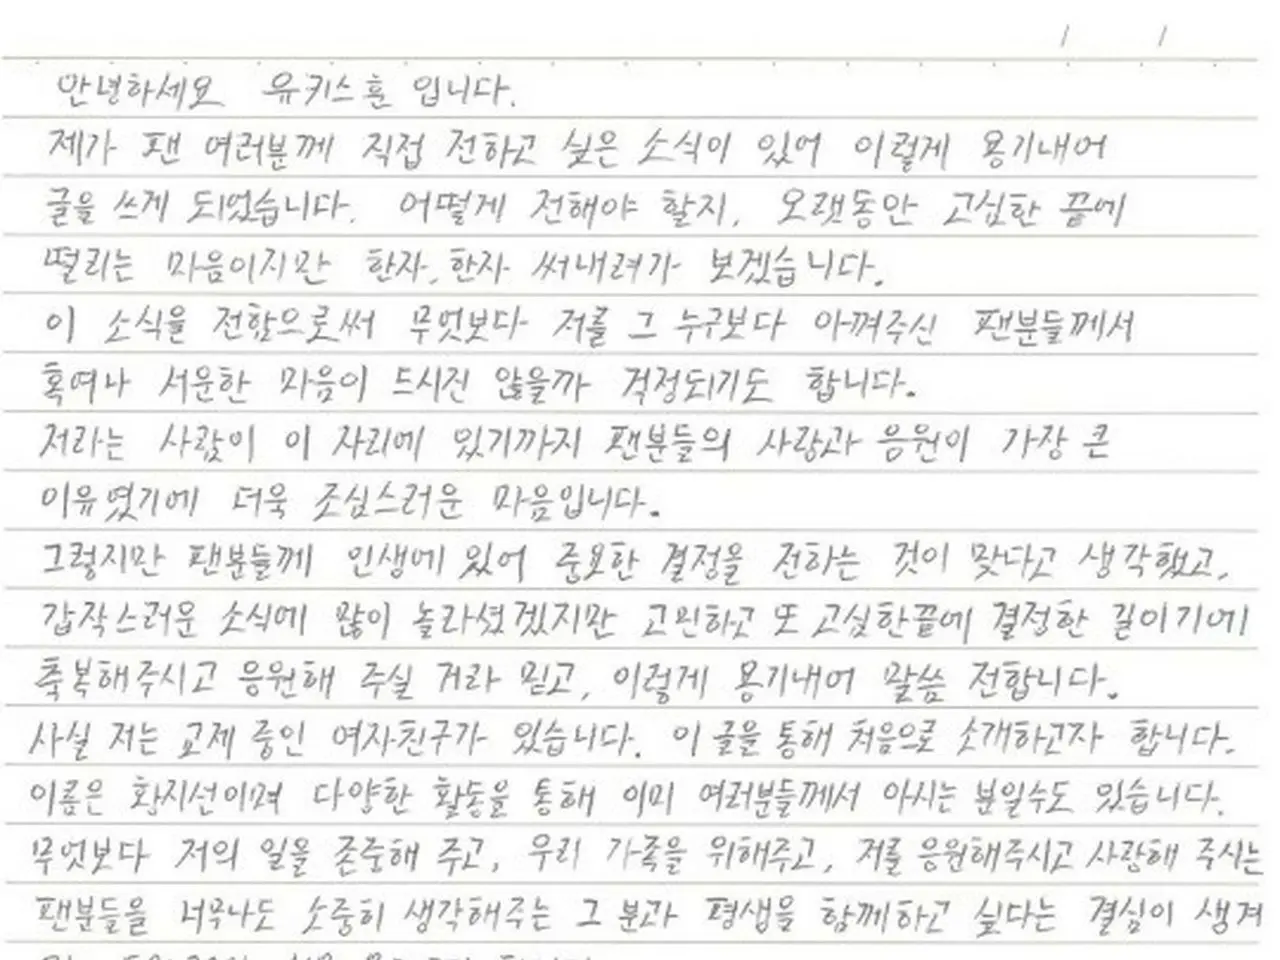 안녕하세요 유키스훈 입니다.
제가 팬 여러분께 직접 전하고 싶은 소식이 있어 이렇게 용기내어
글을 쓰게 되었습니다. 어떻게 전해야 할지, 오랫동안 고심한 끝에
떨리는 마음이지만 한자, 한자 써내려가 보겠습니다.
이 소식을 전함으로써 무엇보다 저를 그 누구보다 아껴주신 팬분들께서
혹여나 서운한 마음이 드시진 않을까 걱정되기도 합니다.
저라는 사람이 이 자리에 있기까지 팬분들의 사랑과 응원이 가장 큰
이유였기에 더욱 조심스러운 마음입니다.
그렇지만 팬분들께 인생에 있어 중요한 결정을 전하는 것이 맞다고 생각했고,
갑작스러운 소식에 많이 놀라셨겠지만 고민하고 또 고심한끝에 결정한 길이기에
축복해주시고 응원해 주실 거라 믿고, 이렇게 용기내어 말씀 전합니다.
사실 저는 교제 중인 여자친구가 있습니다. 이 글을 통해 처음으로 소개하고자 합니다.
이름은 황지선이며 다양한 활동을 통해 이미 여러분들께서 아시는 분일수도 있습니다.
무엇보다 저의 일을 존중해 주고, 우리 가족을 위해주고, 저를 응원해주시고 사랑해 주시는
팬분들을 너무나도 소중히 생각해주는 그 분과 평생을 함께하고 싶다는 결심이 생겨